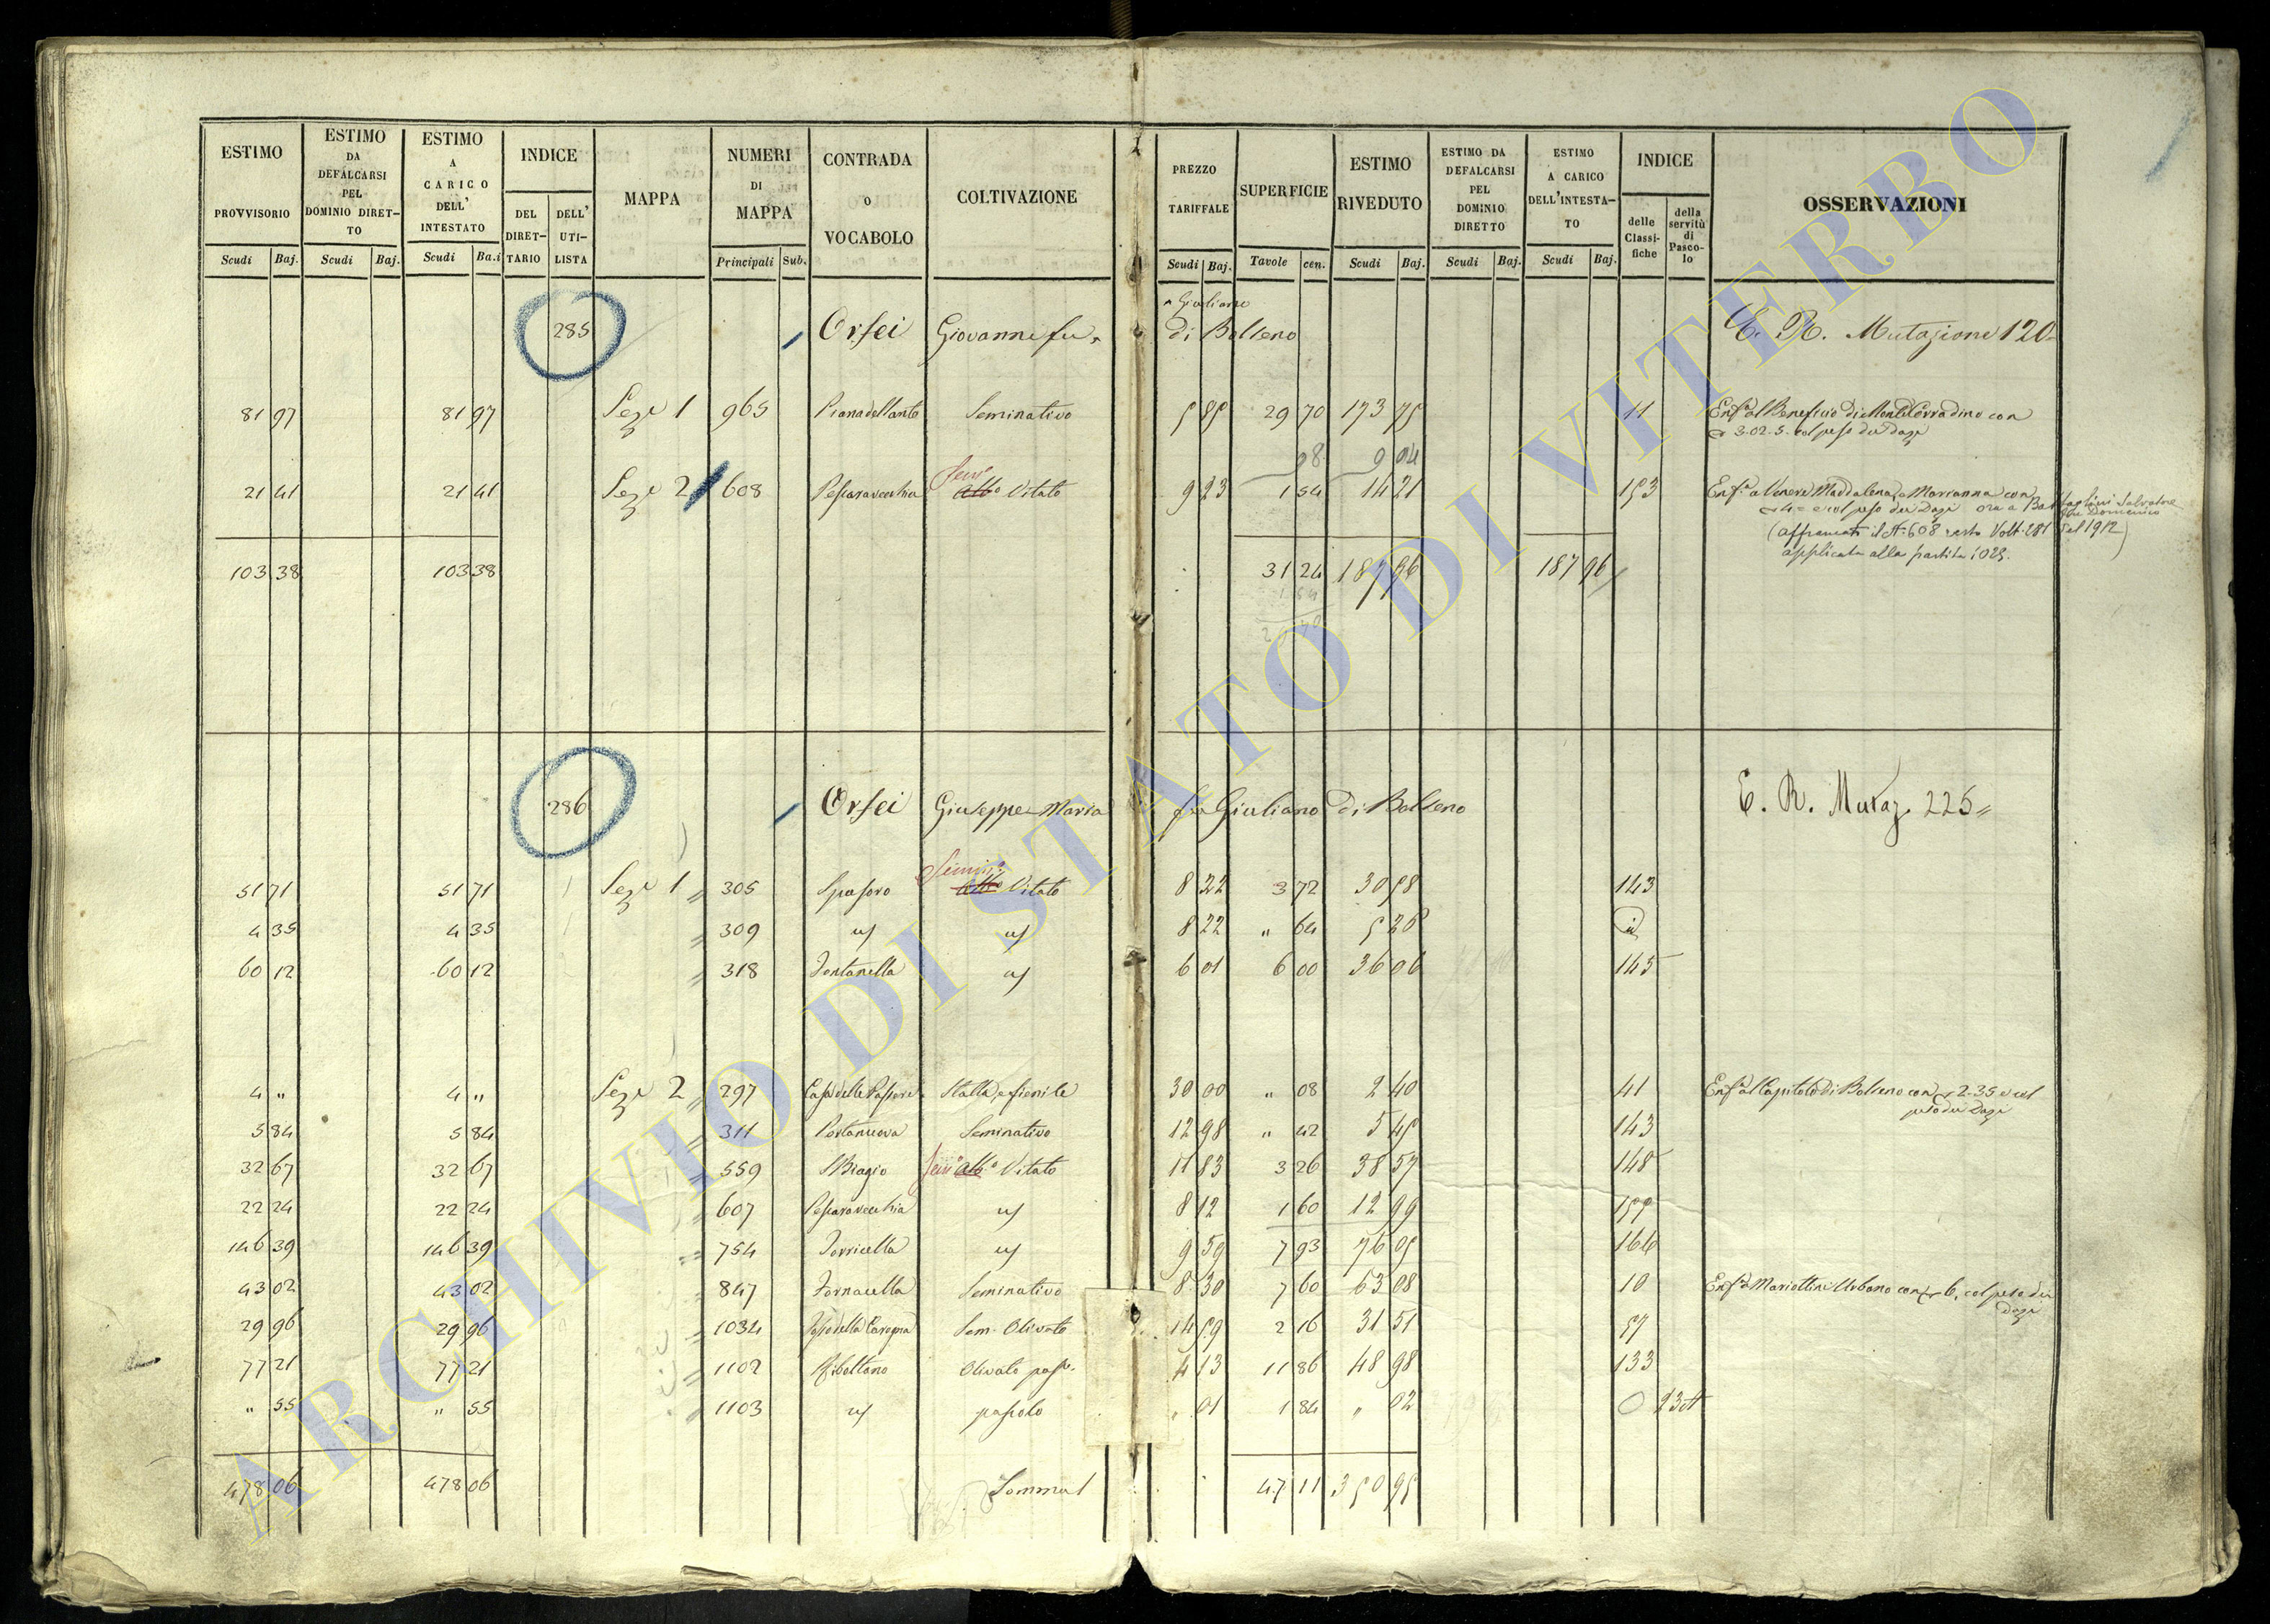 ESTIMO PROVVISORIO
ESTIMO DA DEFALCARSI PEL DOMINIO DIRETTO
ESTIMO A CARICO DELL' INTESTATO
INDICE
DEL DIRETTARIO
DELL' UTILISTA
MAPPA
NUMERI DI MAPPA
CONTRADA O VOCABOLO
COLTIVAZIONE
PREZZO TARIFFALE
SUPERFICIE
ESTIMO RIVEDUTO
ESTIMO DA DEFALCARSI PEL DOMINIO DIRETTO
ESTIMO A CARICO DELL'INTESTATO
INDICE
delle Classifiche
della servitù di Pascolo
OSSERVAZIONI
Scudi Baj. Scudi Baj. Scudi Ba.i Principali Sub. Scudi Baj. Tavole cen. Scudi Baj. Scudi Baj. Scudi Baj.
285 Orfei Giovanne fu Giuliano di Bolseno E. R. Mutazione 120
81 97 81 97 Seze 1 965 Pianadellante Seminativo 5 85 29 70 173 75 11 Enfa al Beneficio di Monte Corradino con
3.02.5. col peso dei Dazi
98 9 04
21 41 21 41 Seze 2 608 Pescaravecchia Semo Albo Vitato 9 23 1 54 14 21 153 Enfa a Venere Maddalena, e Marianna con
4 col peso dei Dazi ora a Battaglini Salvatore fu Domenico
(affrancato il N. 608 resto Volt. 281 del 1912)
applicata alla partita 1025.
103 38 103 38 31 24 187 96 187 96
1 54
286 Orfei Giuseppe Maria fu Giuliano di Bolseno E. R. Mutaz. 225
51 71 51 71 Seze 1 305 Spasoro Semino Albo Vitato 8 22 3 72 30 58 143
4 35 4 35 309 8 22 " 64 5 26 id
60 12 60 12 318 Fontanella 6 01 6 00 36 06 145
4 " 4 " Seze 2 297 Casa delle Passere Stalla, e fienile 30 00 " 08 2 40 41 Enfa al Capitolo di Bolseno con 2-35 e col
peso dei Dazi
5 84 5 84 311 Portanuova Seminativo 12 98 " 42 5 45 143
32 67 32 67 559 S Biagio Semo Albo Vitato 11 83 3 26 38 57 148
22 24 22 24 607 Pescaravecchia 8 12 1 60 12 99 157
146 39 146 39 754 Torricella 9 59 7 93 76 05 166
43 02 43 02 847 Fornacella Seminativo 8 30 7 60 63 08 10 Enfa Mariottini Urbano con 6, col peso dei
Dazi
29 96 29 96 1034 Sem. Olivato 14 59 2 16 31 51 57
77 21 77 21 1102 Ribottano Olivato pasc. 4 13 11 86 48 98 133
" 55 " 55 1103 pascolo " 01 1 84 " 02
478 06 478 06 Somma 47 11 350 95
ARCHIVIO DI STATO DI VITERBO